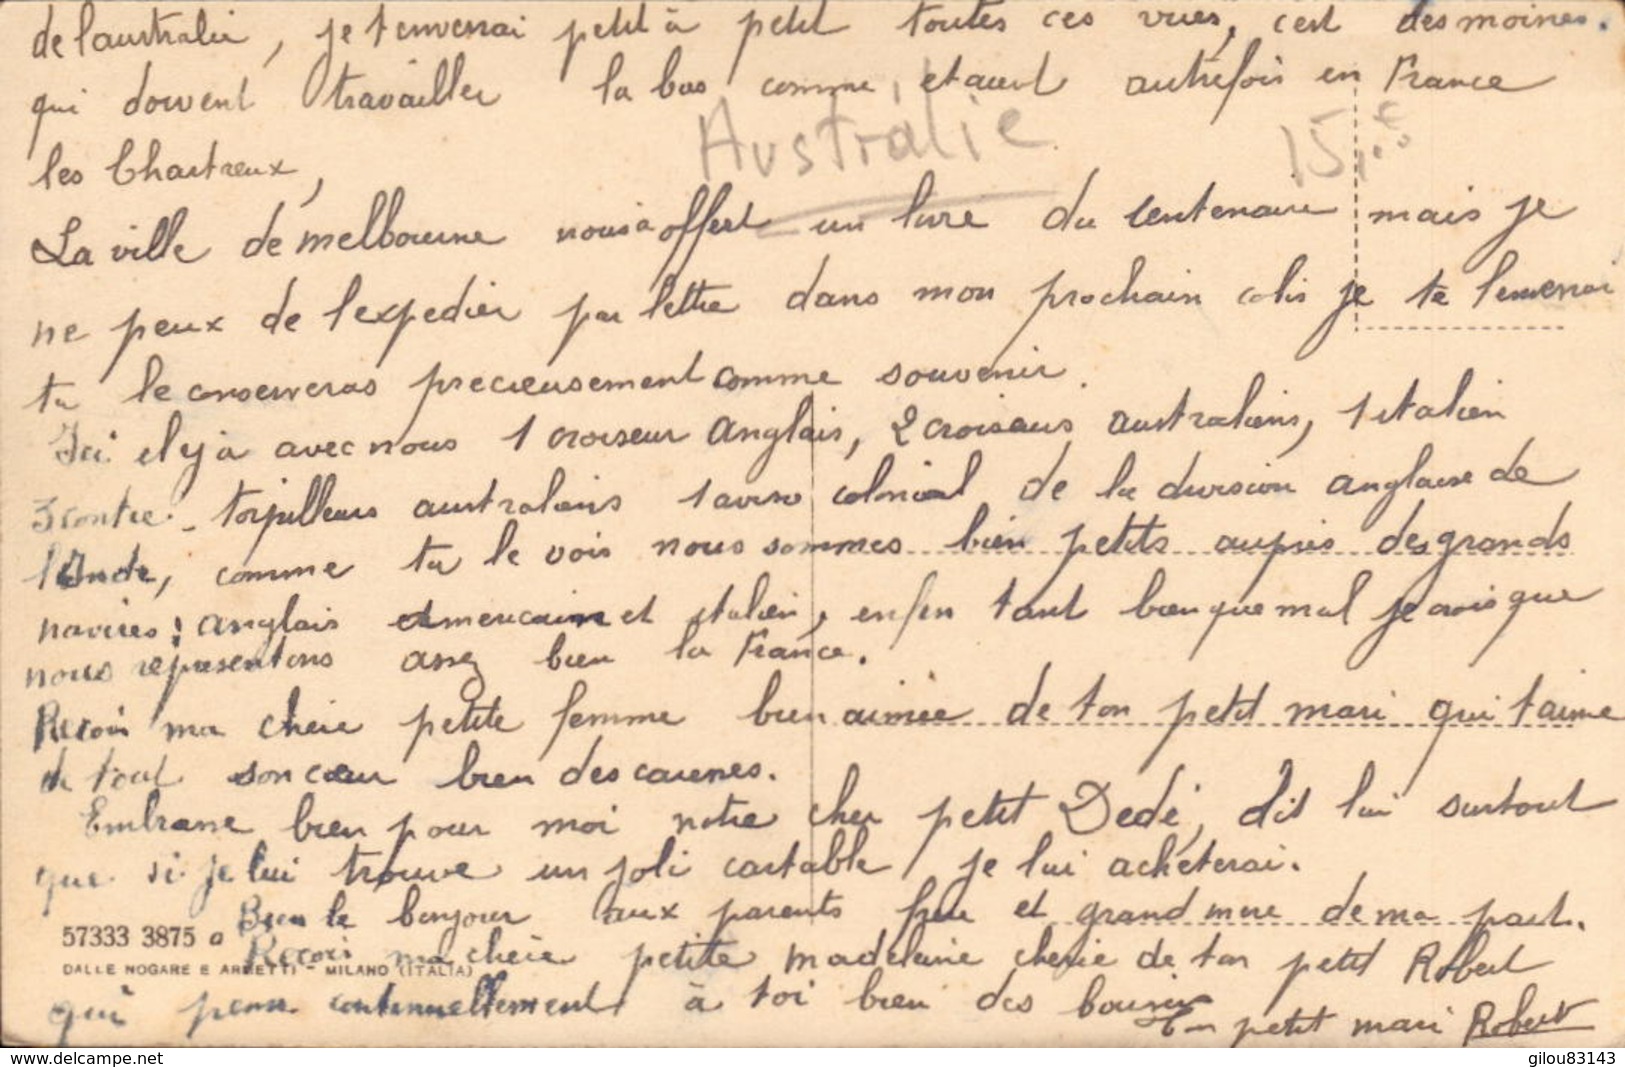 de l'australie, je t'enverrai petit à petit toutes ces vues, c'est des moines.
qui doivent travailler la bas comme, etaient autrefois en France
les Chartreux,
Australie
15,€
La ville de melbourne nous a offert un livre du centenaire mais je
ne peux de l'expedier par lettre dans mon prochain colis je te l'enverrai
tu le conserveras precieusement comme souvenir.
Ici il y à avec nous 1 croiseur anglais, 2 croiseurs australiens, 1 italien
3 contre-torpilleurs australiens 1 aviso colonial de la division anglaise de
l'Inde, comme tu le vois nous sommes bien petits aupres des grands
navires: anglais americain et italien, enfin tant bien que mal je crois que
nous representons assez bien la France.
Recois ma cherie petite femme bien aimée de ton petit mari qui t'aime
de tout son cœur bien des caresses.
Embrasse bien pour moi notre cher petit Dedé, dit lui surtout
que si je lui trouve un joli cartable je lui achèterai.
Bien le bonjour aux parents frere et grand mere de ma part.
57333 3875 a
Recois ma cherie petite madeleine cherie de ton petit Robert
DALLE NOGARE E ARMETTI - MILANO (ITALIA)
qui pense continuellement à toi bien des baisers
Ton petit mari Robert
www.delcampe.net
gilou83143